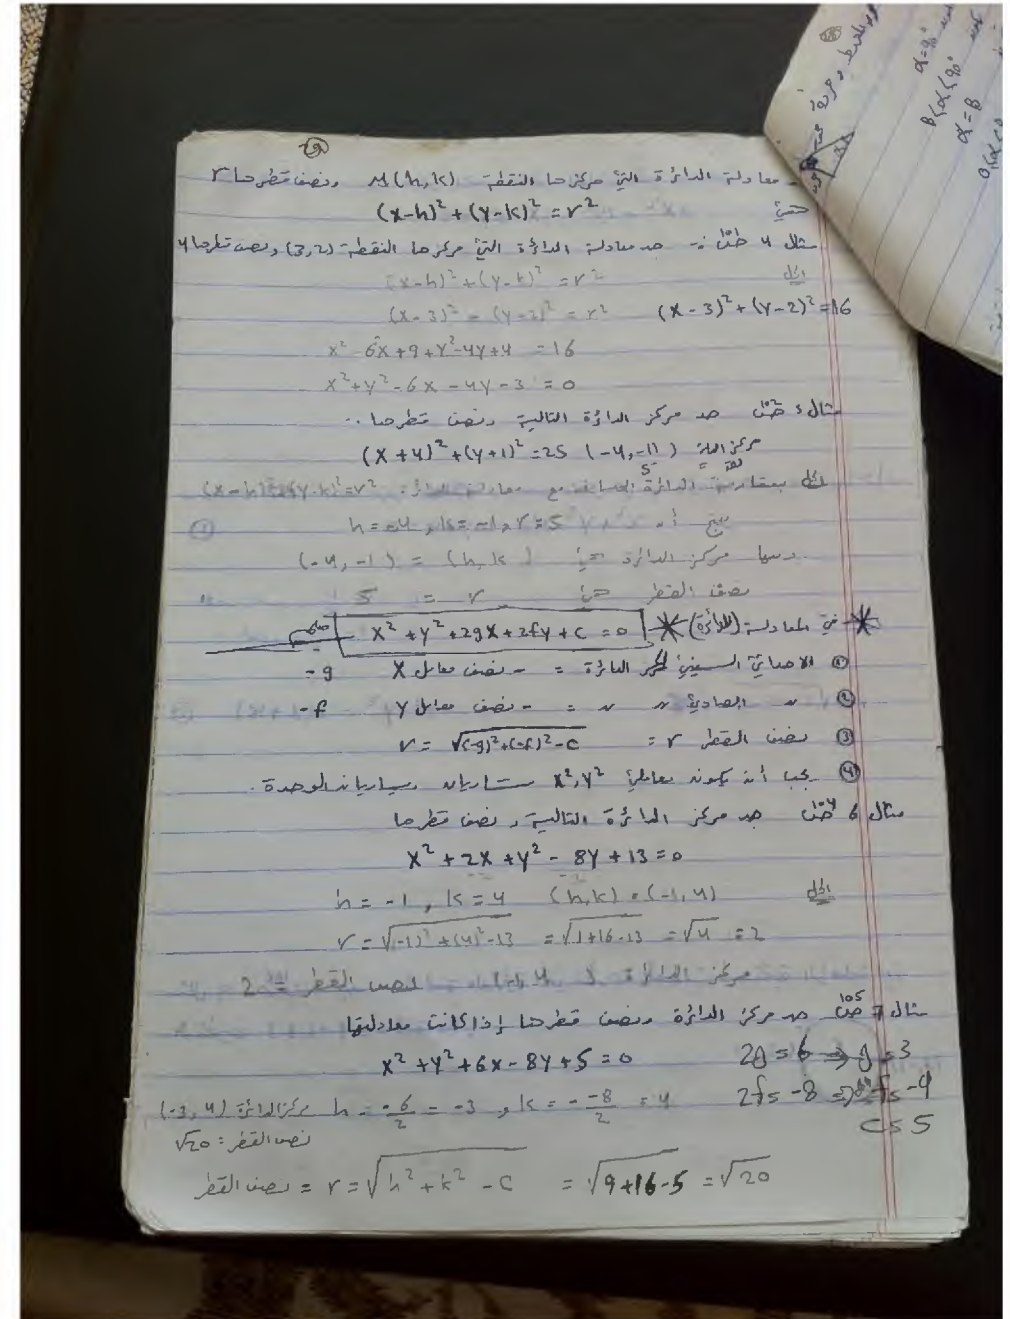 معادلة الدائرة التي مركزها النقطة M(h,k) ونصف قطرها r
هي
(x-h)² + (y-k)² = r²
مثال 4 ص :- جد معادلة الدائرة التي مركزها النقطة (3,2) ونصف قطرها 4
الحل
(x-h)² + (y-k)² = r²
(x-3)² - (y-2)² = r² (x-3)² + (y-2)² = 16
x² - 6x + 9 + y² - 4y + 4 = 16
x² + y² - 6x - 4y - 3 = 0
مثال 5 ص 102 جد مركز الدائرة التالية ونصف قطرها ..
(x+4)² + (y+1)² = 25 (-4,-1) مركز
5
الحل بمقارنة الدائرة مع معادلة الدائرة (x-h)²+(y-k)²=r²
ينتج أن h=-4, k=-1, r=5
مركز الدائرة هي (h,k) = (-4,-1)
نصف القطر هي r = 5
في المعادلة (للدائرة) x² + y² + 2gx + 2fy + c = 0
① الاحداثي السيني لمركز الدائرة = - نصف معامل x -g
② " الصادي " " = - نصف معامل y -f
③ نصف القطر r = r = √(-g)²+(-f)²-c
④ يجب أن يكون معاملي x², y² متساويان ويساويان الوحدة .
مثال 6 ص 104 جد مركز الدائرة التالية و نصف قطرها
x² + 2x + y² - 8y + 13 = 0
الحل (h,k) = (-1,4) h = -1, k = 4
r = √(-1)²+(4)²-13 = √1+16-13 = √4 = 2
مركز الدائرة نصف القطر = 2
مثال 7 ص 105 جد مركز الدائرة ونصف قطرها إذا كانت معادلتها
x² + y² + 6x - 8y + 5 = 0 2g = 6 ⇒ g = 3
h = -6/2 = -3 , k = - -8/2 = 4 مركز الدائرة (-3,4) 2f = -8 ⇒ f = -4
نصف القطر = √20 c = 5
نصف القطر = r = √h² + k² - c = √9+16-5 = √20